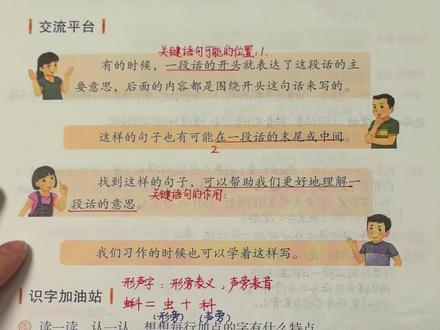 交流平台
关键语句可能的位置:1.
有的时候，一段话的开头就表达了这段话的主
要意思，后面的内容都是围绕开头这句话来写的。
这样的句子也有可能在一段话的末尾或中间。
2
找到这样的句子，可以帮助我们更好地理解一
段话的意思。关键语句的作用:
我们习作的时候也可以学着这样写。
形声字:形旁表义,声旁表音
识字加油站
蝌=虫+科
(形旁) (声旁)
读一读，认一认，想想每行加点的字有什么特点